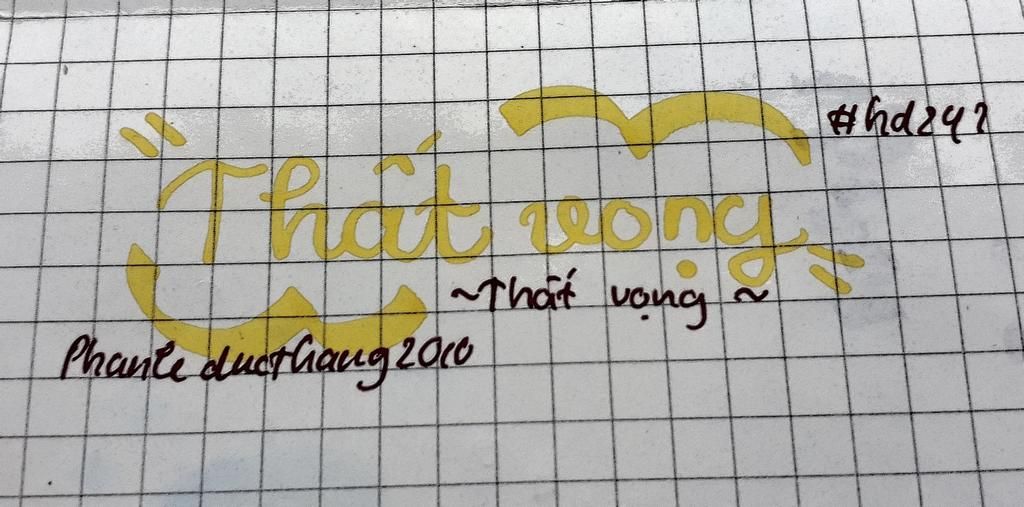 #hd247
Thất vọng
~Thất vọng~
Phanle ducthang2010